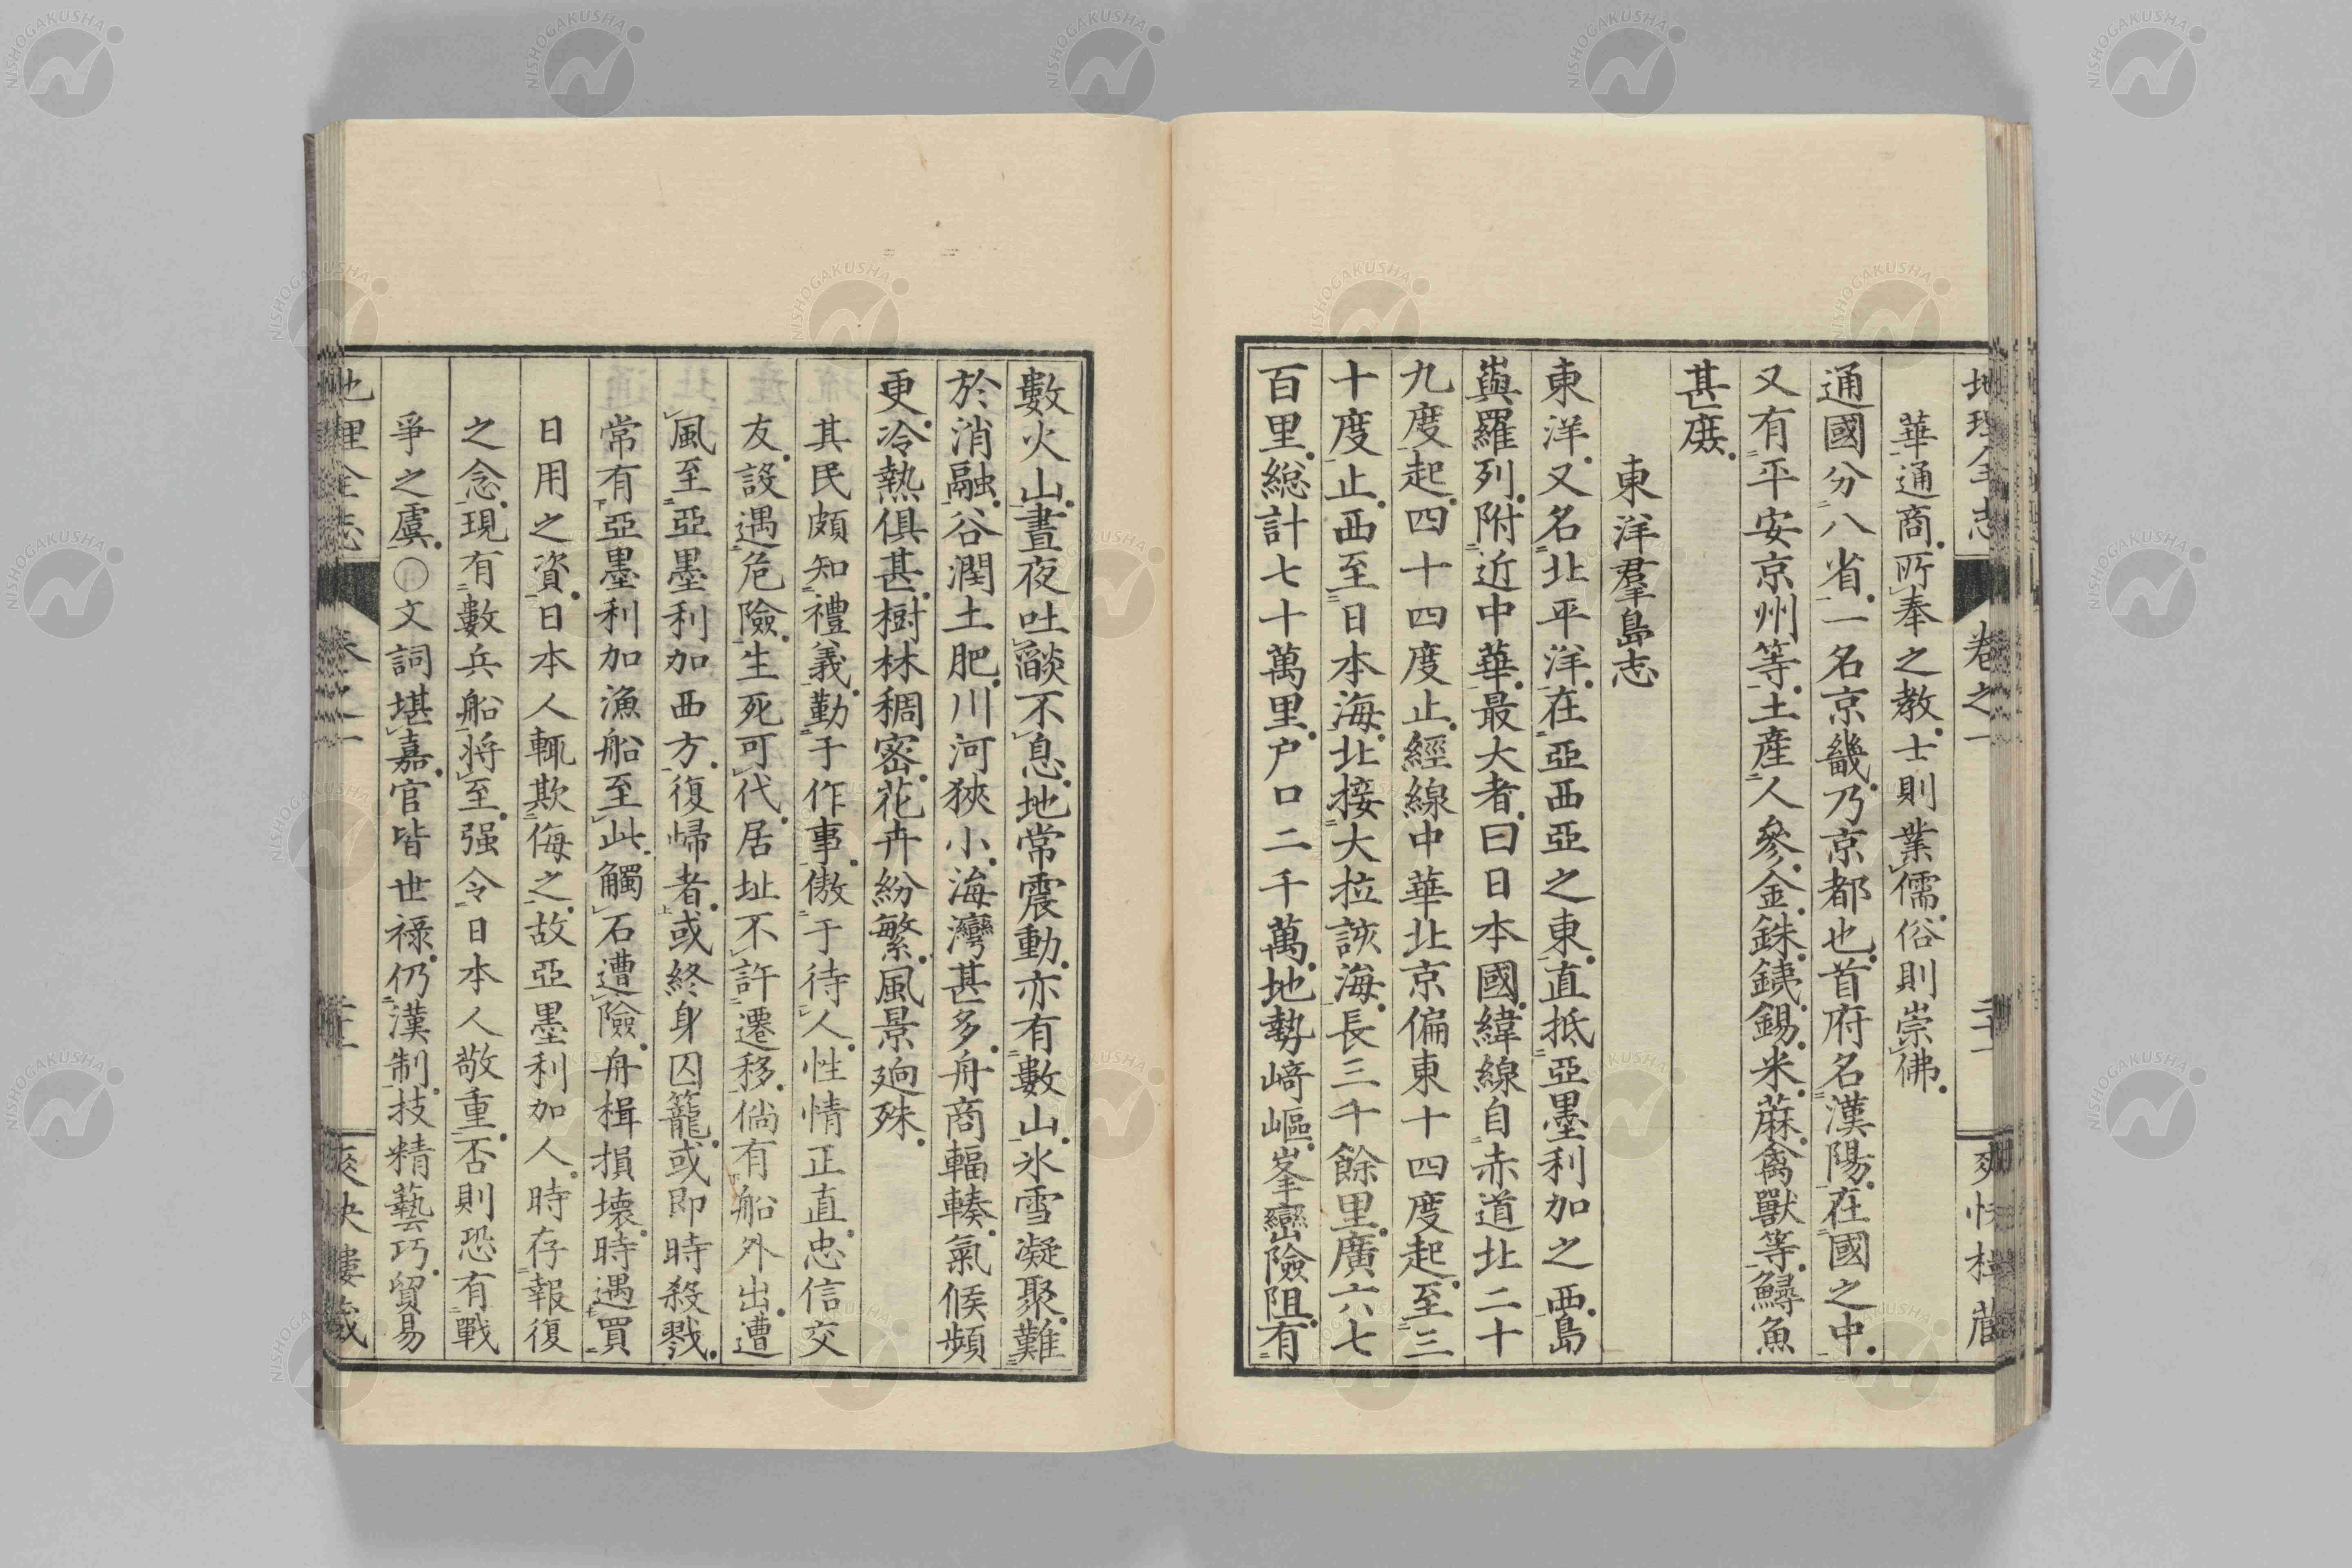 地理全志 卷之一 二十一 爽快樓藏
華通商。所奉之教。士則業儒。俗則崇佛。
通國分八省。一名京畿。乃京都也。首府名漢陽。在國之中。
又有平安京州等。土產人參。金。銖。銕。錫。米。蔴。禽獸等。鱘魚
甚庶。
東洋羣島志
東洋。又名北平洋。在亞西亞之東。直抵亞墨利加之西。島
與羅列。附近中華。最大者。曰日本國。緯線自赤道北二十
九度起。四十四度止。經線中華北京偏東十四度起。至三
十度止。西至日本海。北接大拉該海。長三千餘里。廣六七
百里。總計七十萬里。户口二千萬。地勢﨑嶇。峯巒險阻。有
數火山。晝夜吐燄不息。地常震動。亦有數山。氷雪凝聚。難
於消融。谷潤土肥。川河狹小。海灣甚多。舟商輻輳。氣候頻
更。冷熱俱甚。樹林稠密。花卉紛繁。風景廻殊。
其民頗知禮義。勤于作事。傲于待人。性情正直。忠信交
友。設遇危險。生死可代。居址不許遷移。倘有船外出。遭
風至亞墨利加西方。復歸者。或終身囚籠。或即時殺戮。
常有亞墨利加漁船至此。觸石遭險。舟楫損壞。時遇買
日用之資。日本人輒欺侮之。故亞墨利加人。時存報復
之念。現有數兵船將至。强令日本人敬重。否則恐有戰
爭之虞。〇文詞堪嘉。官皆世祿。仍漢制。技精藝巧。貿易
地理全志 卷之一 爽快樓藏
NISHOGAKUSHA